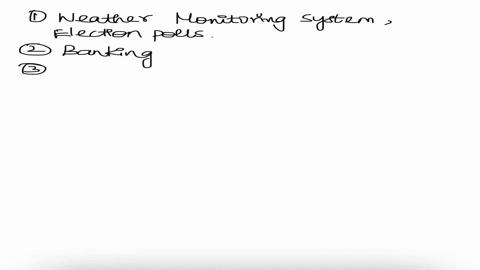 ① Weather Monitoring System,
Election polls.
② Banking
③